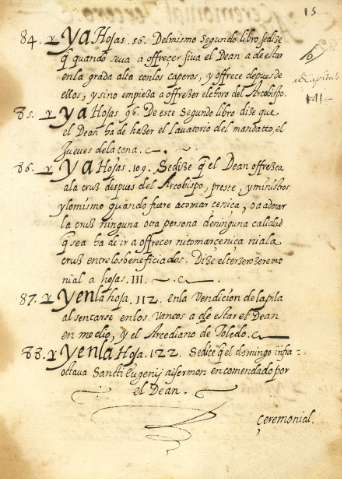 15
84. y ya Hojas. 56. Del mismo segundo libro se dize
q̃ quando se va a offrecer si va el Dean a de estar
en la grada alto con los caperos, y offrece despues de
ellos, y sino empieça a offrecer el choro del Arcobispo.
85. y ya Hojas 96. De este segundo libro dize que
el Dean ha de haser el lauatorio del mandatto, el
jueues de la cena.
86. y ya Hojas. 109. Se dize q̃ el Dean offresca
a la cruz despues del Arcobispo, preste, y ministros
y lo mismo quando fuere a tomar ceniça, o a adorar
la cruz ninguna otra persona de ninguna calidad
q̃ sea ha di ir a offrecer ni tomar ceniça ni a la
cruz entre los beneficiados. Dize el terzero ceremo
nial a hojas. 111.
87. y yen la hoja. 112. en la vendicion de la pila
al sentarse en los vancos a de estar el Dean
en medio, y el Arcediano de Toledo.
88. y yen la Hoja. 122. Se dize q̃ el domingo infra
ottaua Santti Eugenij ay sermon encomendado por
el Dean.
Ceremonial.